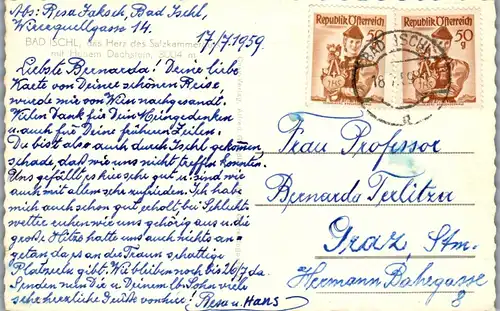 Abs: Resa Jaksch, Bad Ischl,
Wirerquellgasse 14.
17/7. 1959.
BAD ISCHL, das Herz des Salzkammerguts
mit Hohem Dachstein, 3004 m
Liebste Bernarda! Deine liebe
Karte von Deiner schönen Reise
wurde mir von Wien nachgesandt.
Vielen Dank für Dein Meingedenken
u. auch für Deine früheren Zeilen.
Du bist also auch durch Ischl gekommen,
schade, daß wir uns nicht treffen konnten.
Uns gefällt es hier sehr gut u. sind wir
auch mit allem sehr zufrieden. Ich habe
mich auch schon gut erholt, bei Schlecht-
wetter ruhen wir uns gehörig aus u. die
große Hitze hatte uns auch nichts an-
getan da es an der Traun schattige
Platzerln gibt. Wir bleiben noch bis 26/7 da.
Senden nun Dir u. Deinem lb. Sohn viele
sehr herzliche Grüße von hier! Resa u. Hans
Republik Österreich
50 g
Republik Österreich
50 g
BAD ISCHL
Frau Professor
Bernarda Terlitza
Graz, Stm.
Hermann Bahrgasse
8